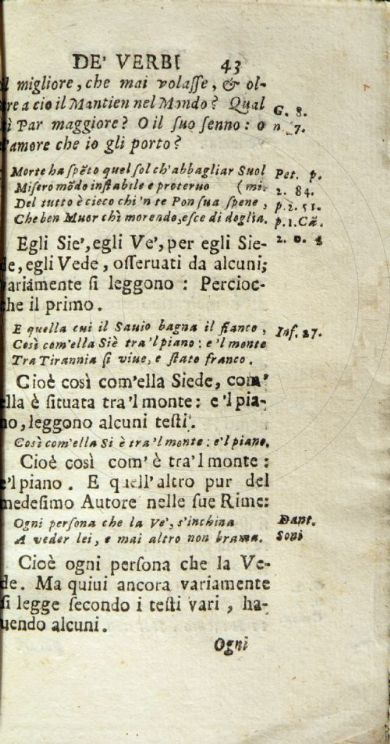 DE' VERBI 43
l migliore, che mai volaſſe, & ol-
re a cio il Mantien nel Mondo? Qual G. 8.
ì Par maggiore? O il ſuo ſenno: o n 7.
'amore che io gli porto?
Morte ha ſpẽto quel ſol ch'abbagliar Suol Pet. p.
Miſero mõdo inſtabile e proteruo (mi. 2. 84.
Del tutto è cieco chi 'n te Pon ſua ſpene, p. 2. 51.
Che ben Muor chi morendo, eſce di doglia. p. 1. Cã.
Egli Sie', egli Ve', per egli Sie- 2. 0. 2
de, egli Vede, oſſeruati da alcuni;
variamente ſi leggono: Percioc-
che il primo.
E quella cui il Sauio bagna il fianco, Inf. 27.
Così com'ella Siè tra'l piano: e 'l monte
Tra Tirannia ſi viue, e ſtato franco.
Cioè così com'ella Siede, com'
lla è ſituata tra'l monte: e 'l pia-
no, leggono alcuni teſti.
Così com'ella Si è tra'l monte: e'l piano.
Cioè così com' è tra'l monte:
e'l piano. E quell'altro pur del
medeſimo Autore nelle ſue Rime:
Ogni perſona che la Ve', s'inchina Dant.
A veder lei, e mai altro non brama. Soni
Cioè ogni perſona che la Ve-
de. Ma quiui ancora variamente
ſi legge ſecondo i teſti vari, ha-
uendo alcuni.
Ogni